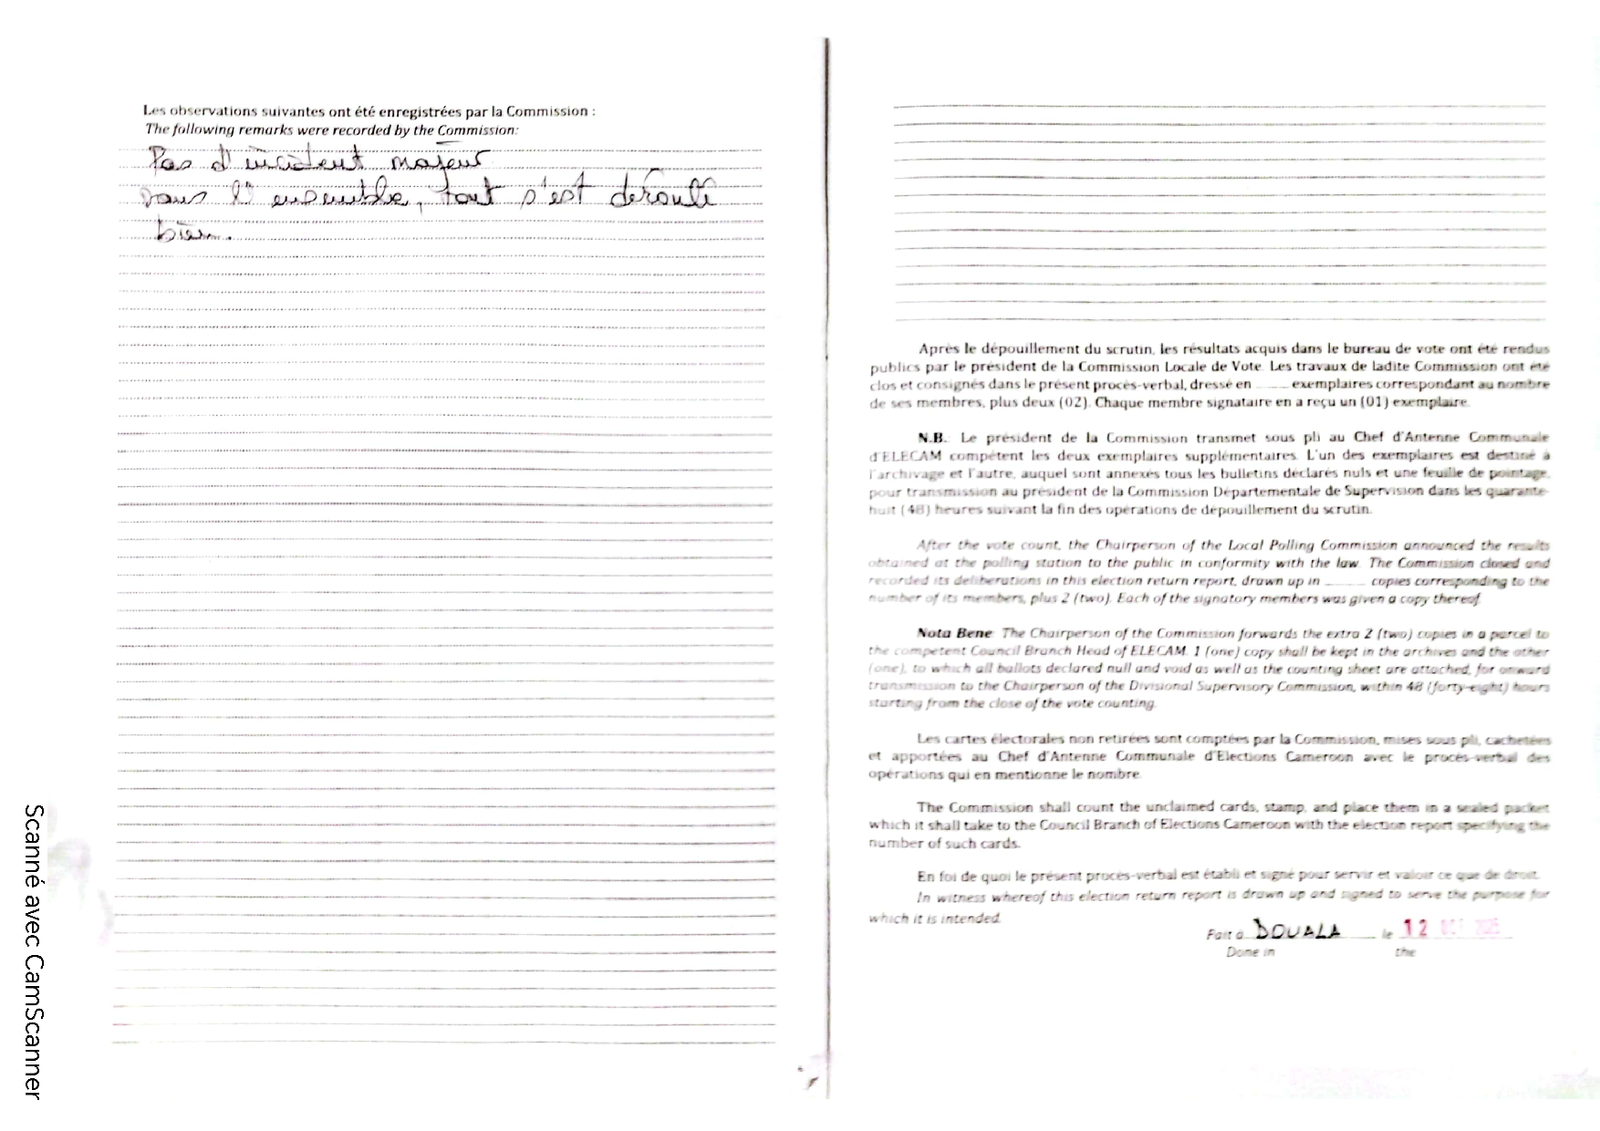 Les observations suivantes ont été enregistrées par la Commission :
The following remarks were recorded by the Commission:
Pas d'incident majeur
Dans l'ensemble, tout s'est déroulé
bien.
Après le dépouillement du scrutin, les résultats acquis dans le bureau de vote ont été rendus
publics par le président de la Commission Locale de Vote. Les travaux de ladite Commission ont été
clos et consignés dans le présent procès-verbal, dressé en ........ exemplaires correspondant au nombre
de ses membres, plus deux (02). Chaque membre signataire en a reçu un (01) exemplaire.
N.B.: Le président de la Commission transmet sous pli au Chef d'Antenne Communale
d'ELECAM compétent les deux exemplaires supplémentaires. L'un des exemplaires est destiné à
l'archivage et l'autre, auquel sont annexés tous les bulletins déclarés nuls et une feuille de pointage,
pour transmission au président de la Commission Départementale de Supervision dans les quarante-
huit (48) heures suivant la fin des opérations de dépouillement du scrutin.
After the vote count, the Chairperson of the Local Polling Commission announced the results
obtained at the polling station to the public in conformity with the law. The Commission closed and
recorded its deliberations in this election return report, drawn up in ........ copies corresponding to the
number of its members, plus 2 (two). Each of the signatory members was given a copy thereof.
Nota Bene: The Chairperson of the Commission forwards the extra 2 (two) copies in a parcel to
the competent Council Branch Head of ELECAM. 1 (one) copy shall be kept in the archives and the other
(one), to which all ballots declared null and void as well as the counting sheet are attached, for onward
transmission to the Chairperson of the Divisional Supervisory Commission, within 48 (forty-eight) hours
starting from the close of the vote counting.
Les cartes électorales non retirées sont comptées par la Commission, mises sous pli, cachetées
et apportées au Chef d'Antenne Communale d'Elections Cameroon avec le procès-verbal des
opérations qui en mentionne le nombre.
The Commission shall count the unclaimed cards, stamp, and place them in a sealed packet
which it shall take to the Council Branch of Elections Cameroon with the election report specifying the
number of such cards.
En foi de quoi le présent procès-verbal est établi et signé pour servir et valoir ce que de droit.
In witness whereof this election return report is drawn up and signed to serve the purpose for
which it is intended.
Fait à DOUALA le 12 OCT 2025
Done in the
Scanné avec CamScanner